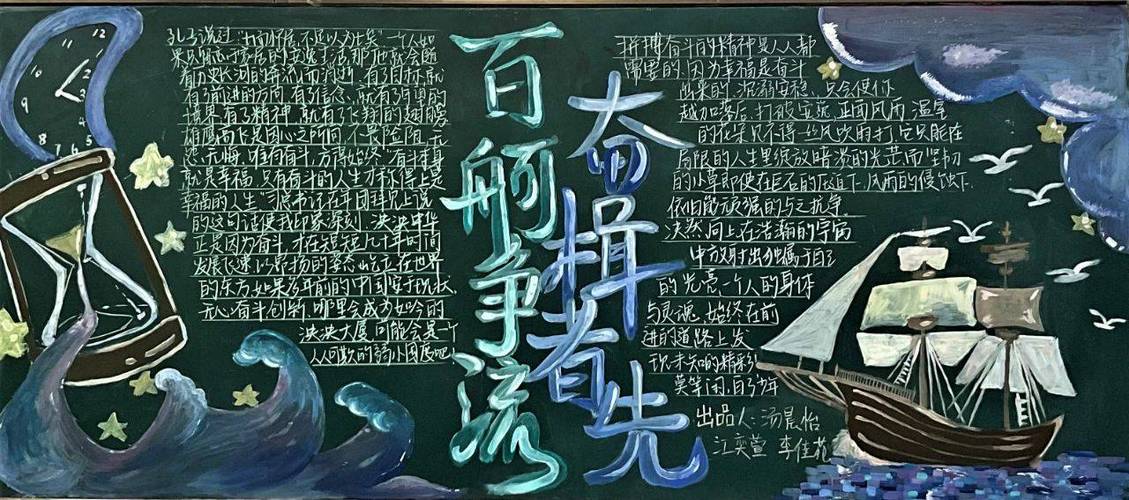 孔子说过："士而怀居，不足以为士矣"一个人如
果只躺在于安居的安逸生活，那么他就会随
着历史长河的奔流而消逝，有了目标，就
有了前进的方向，有了信念，就有了
世界，有了精神，就有了飞翔的翅膀
雄鹰高飞是因心之所向，不畏险阻，无
悔，唯有奋斗，方得始终"奋斗本身
就是幸福，只有奋斗的人生才称得上是
幸福的人生"习总书记在年团拜会上说
的这句话使我印象深刻，泱泱中华
正是因为奋斗，才在短短几十年时间
发展飞速，以昂扬的姿态屹立在世界
的东方，如果多年前的中国安于现状，
无心奋斗创新，哪里会成为如今的
泱泱大厦，可能会是一个
人人可欺的弱小国度吧
百舸争流
奋楫者先
拼搏奋斗的精神是人人都
需要的，因为幸福是奋斗
出来的，沉溺安稳，只会使你
越加落后，打破安逸，正面风雨，温室
的花朵只不得一丝风吹雨打，它只能在
局限的人生里绽放暗淡的光芒而坚韧
的小草即使在巨石的压迫下，风雨的侵蚀下，
依旧能顽强的与之抗争。
决然向上在浩瀚的宇宙
中方放射出独属于自己
的光亮，一个人的身体
与灵魂，始终在前
进的道路上发
现未知的精彩！
莫等闲，白了少年
出品人：汤晨怡
江奕萱 李佳苑